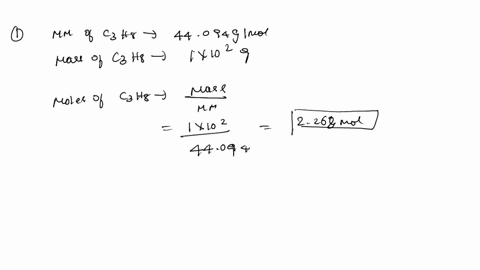 ① MM of C3H8 → 44.094g/mol
Mass of C3H8 → 1×10² g
Moles of C3H8 → Mass / MM
= 1×10² / 44.094 = 2.268 mol